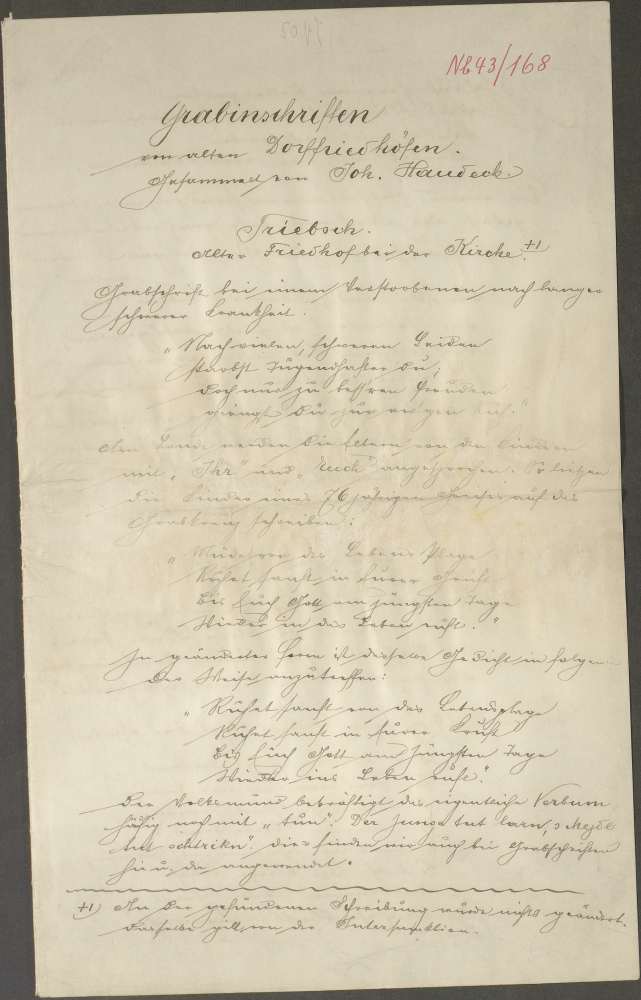 Nb 43/168
Grabinschriften
von alten Dorffriedhöfen.
Gesammelt von Joh. Haudeck
Triebsch.
Alter Friedhof bei der Kirche. +1
Grabschrift bei einem Verstorbenen nach langer
schwerer Krankheit.
„Nach vielen, schweren Leiden
starbst Tugendhafter Du;
Doch nur zu bessren Freuden
giengst Du zur ewgen Ruh."
Am Lande werden die Eltern von den Kindern
mit „Ihr" und „Euch" angesprochen. So ließen
die Kinder eines 76 jährigen Greises auf das
Grabkreuz schreiben:
„Müde von des Lebens Plage
Ruhet sanft in Eurer Gruft
Bis Euch Gott am jüngsten Tage
Wieder in das Leben ruft."
In geänderter Form ist dasselbe Gedicht in folgen
der Weise anzutreffen:
„Ruhet sanft von der Lebensplage
Ruhet sanft in Eurer Kruft
Bis Euch Gott am Jüngsten Tage
Wieder ins Leben ruft."
Der Volksmund bekräftigt das eigentliche Verbum
häfig noch mit „tun". Der Junge tut larn, s Mejdl
tut schtrikn". dies finden wir auch bei Grabschriften
hie u. da angewendet.
+1) An der gefundenen Schreibung wurde nichts geändert.
dasselbe gilt von der Interpunktion.